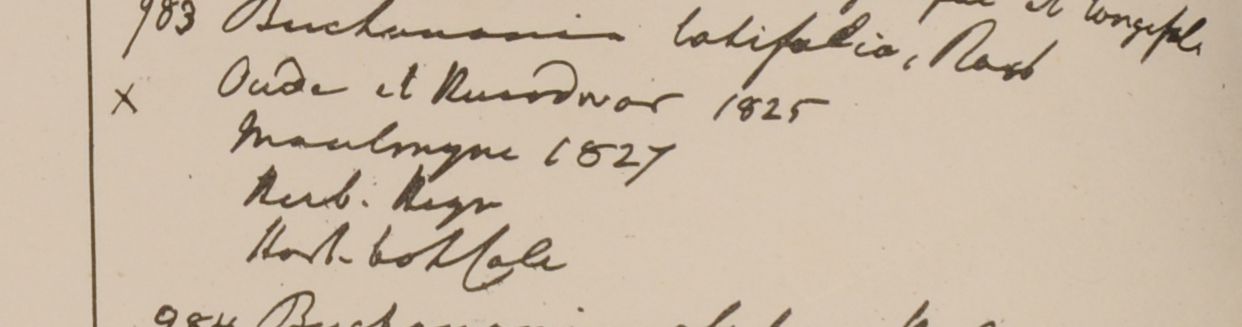 et longifol
983 Buchanania latifolia, Roxb
x Oude et Kurrdwar 1825
Maulmyne 1827
Herb. Heyn
Hort. bot Calc
984 Buchanania